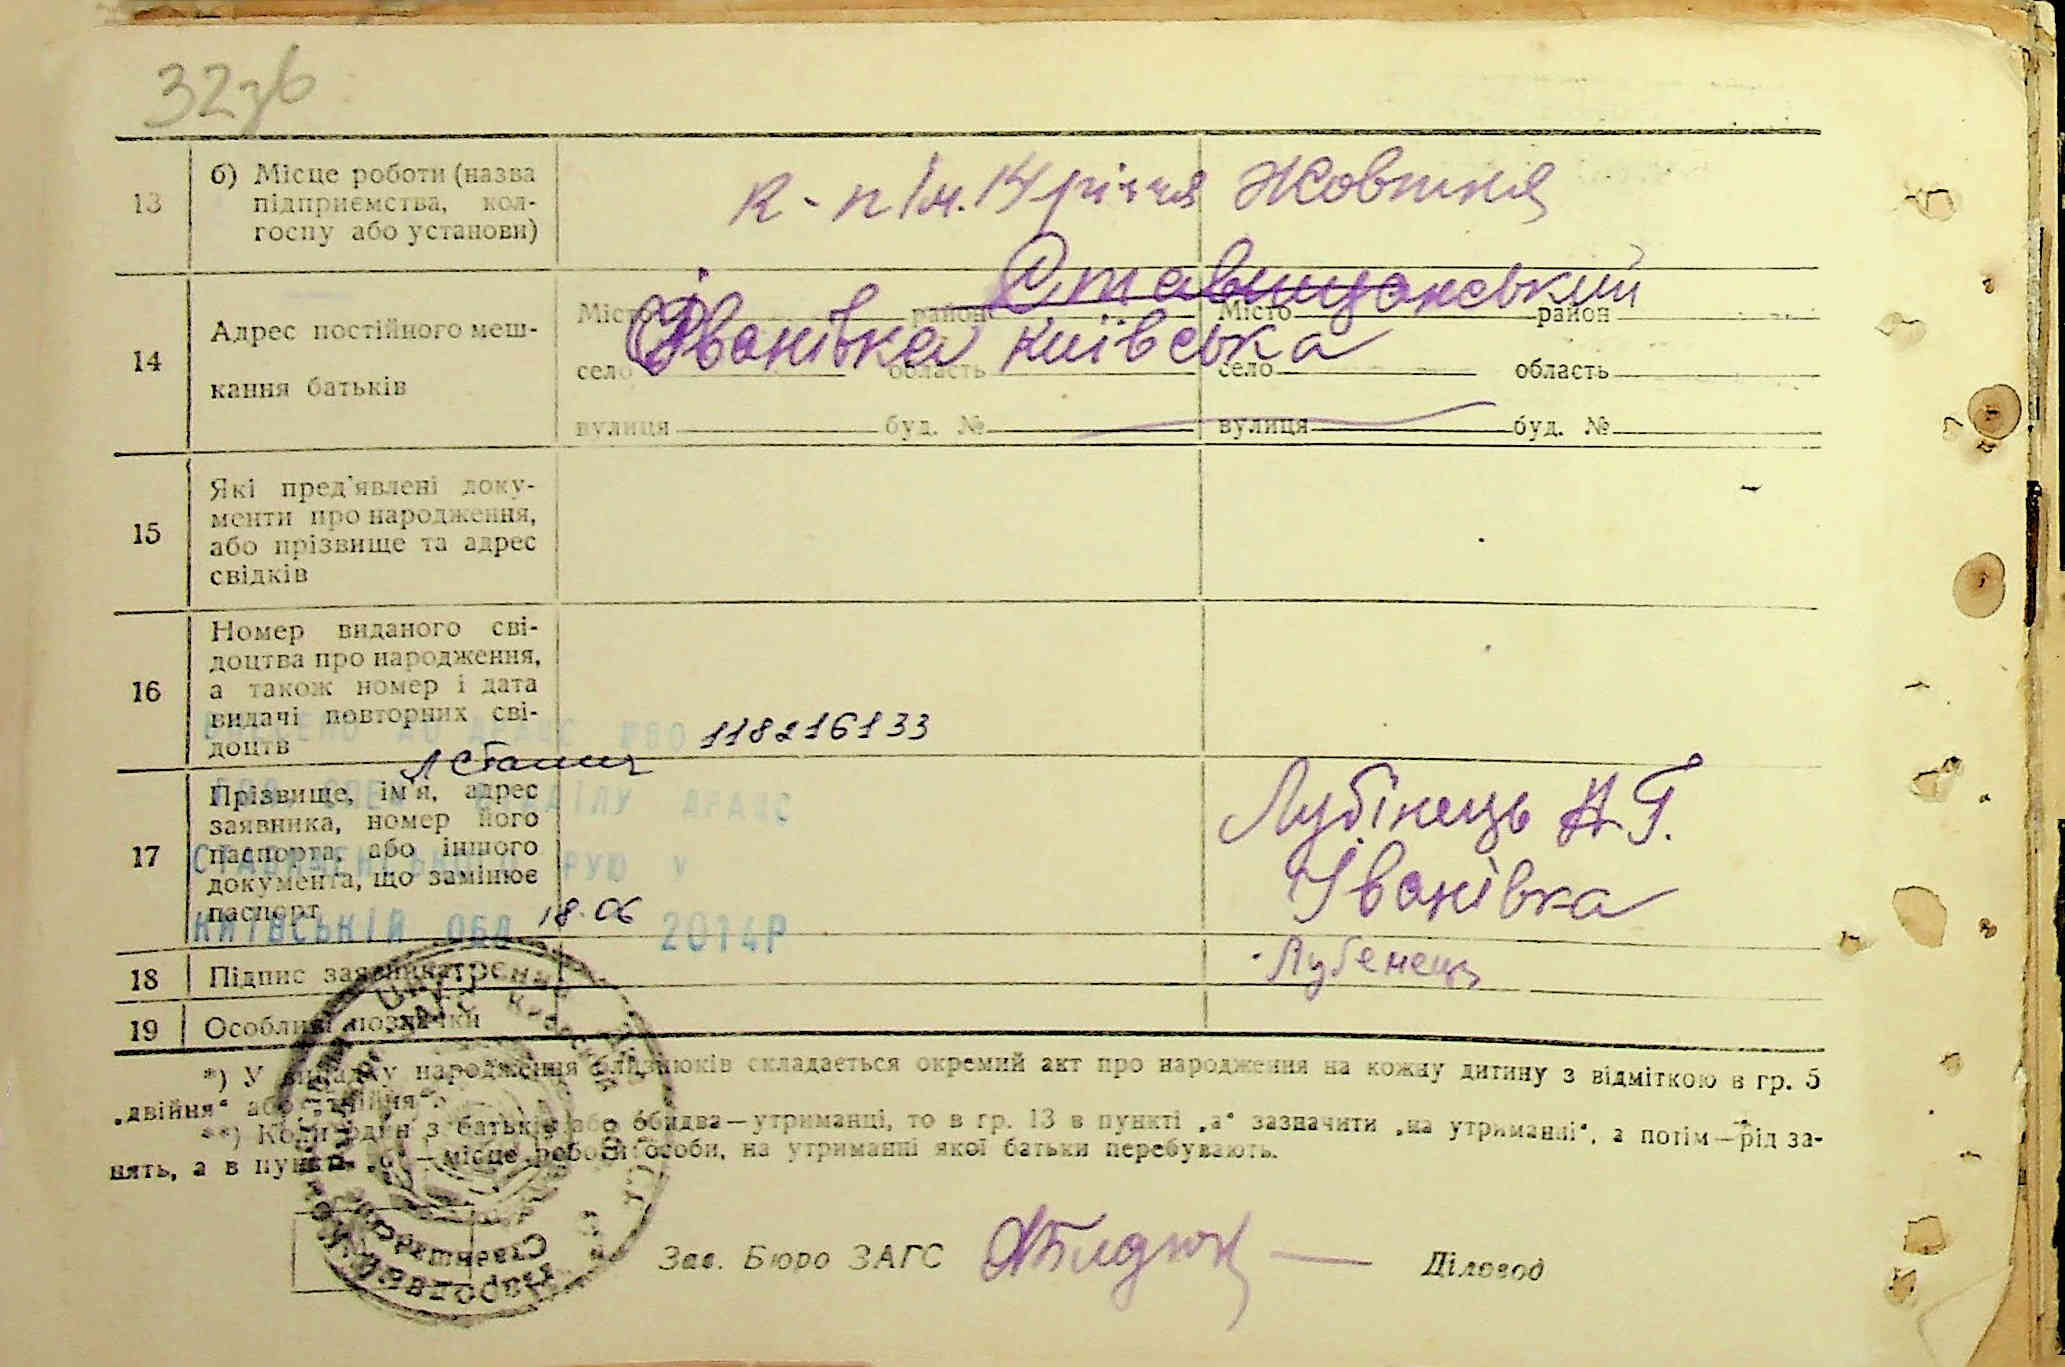 32зв
13 б) Місце роботи (назва
підприємства, кол-
госпу або установи)
к-п ім. 14 річчя Жовтня
14 Адрес постійного меш-
кання батьків
Ставищанський
Місто район Місто район
Іванівка Київська
село область село область
вулиця буд. № вулиця буд. №
15 Які пред'явлені доку-
менти про народження,
або прізвище та адрес
свідків
16 Номер виданого сві-
доцтва про народження,
а також номер і дата
видачі повторних сві-
доцтв
ВНЕСЕНО ДО ДРАЦС
118216133
17 Прізвище, ім'я, адрес
заявника, номер його
паспорта, або іншого
документа, що замінює
паспорт
ВІДДІЛУ ДРАЦС
РУЮ У
КИЇВСЬКІЙ ОБЛ 18.06 2014Р
Лубінець Н.Г.
Іванівка
18 Підпис заявника
Лубенець
19 Особливі позначки
*) У випадку народження близнюків складається окремий акт про народження на кожну дитину з відміткою в гр. 5
„двійня“ або „трійня“.
**) Коли один з батьків або обидва—утриманці, то в гр. 13 в пункті „а“ зазначити „на утриманні“, а потім—рід за-
нять, а в пункті „б“—місце роботи особи, на утриманні якої батьки перебувають.
Зав. Бюро ЗАГС Діловод